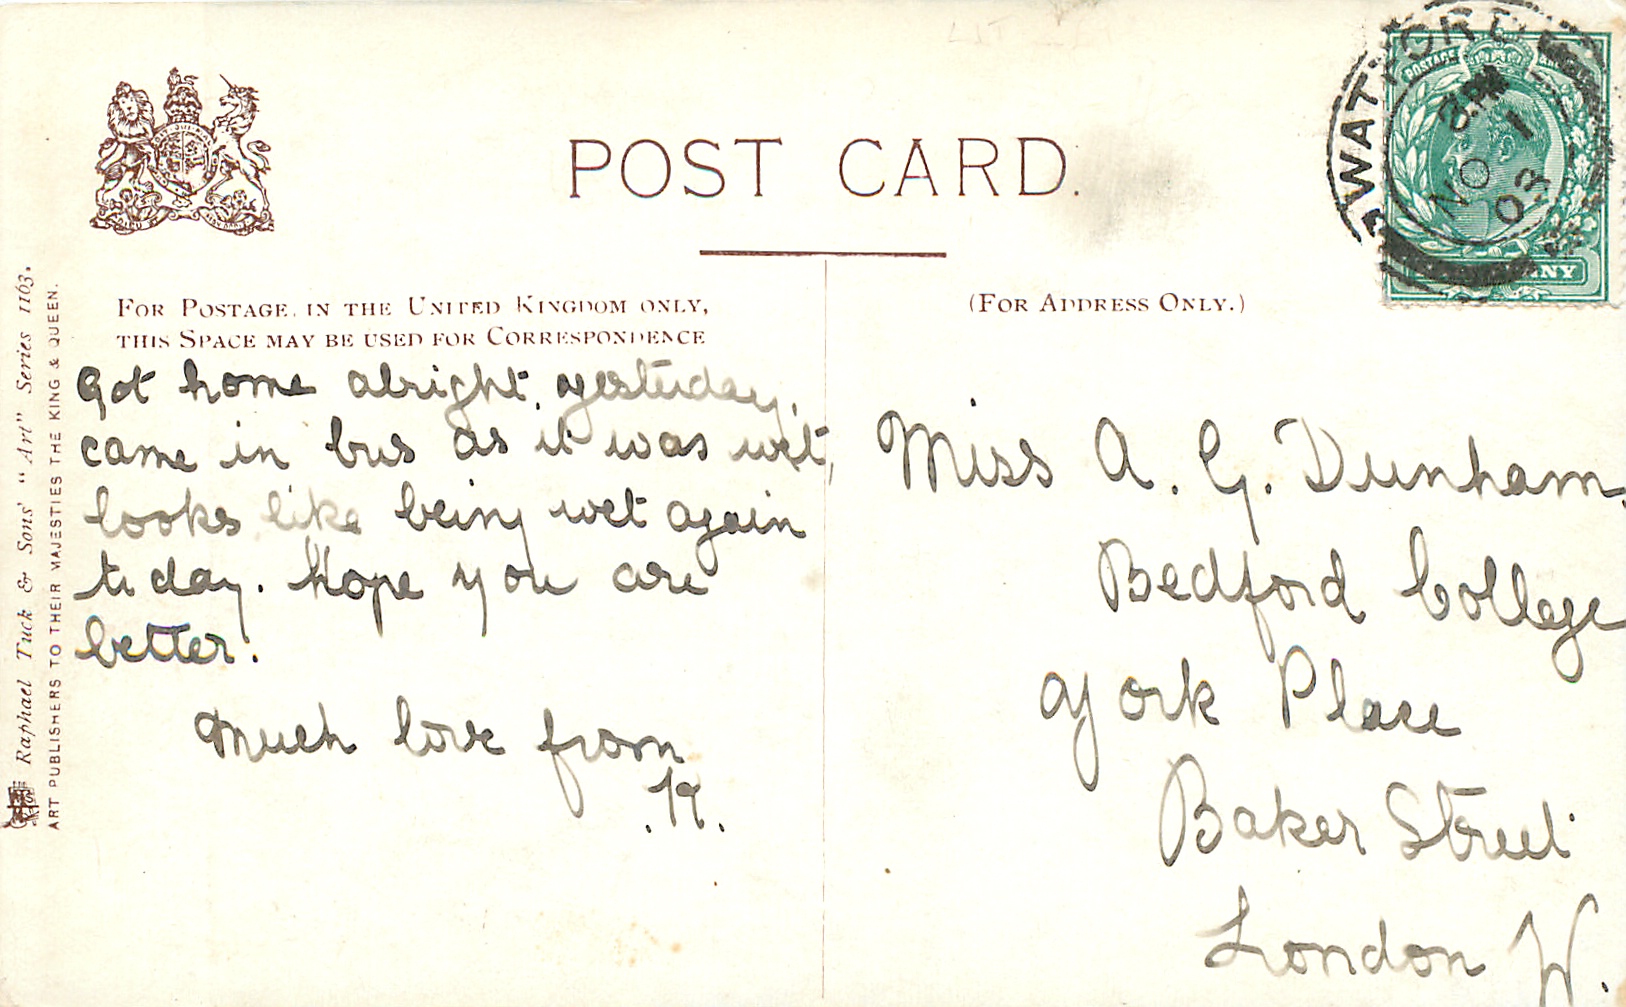 POST CARD.
FOR POSTAGE, IN THE UNITED KINGDOM ONLY,
THIS SPACE MAY BE USED FOR CORRESPONDENCE
(FOR ADDRESS ONLY.)
Got home alright yesterday,
came in bus as it was wet,
looks like being wet again
to day. Hope you are
better.
Much love from
Miss A. G. Dunham.
Bedford College
York Place
Baker Street
London W.
Raphael Tuck & Sons' "Art" Series 1163.
ART PUBLISHERS TO THEIR MAJESTIES THE KING & QUEEN.
WATFORD
8. PM
NO 1
03
POSTAGE